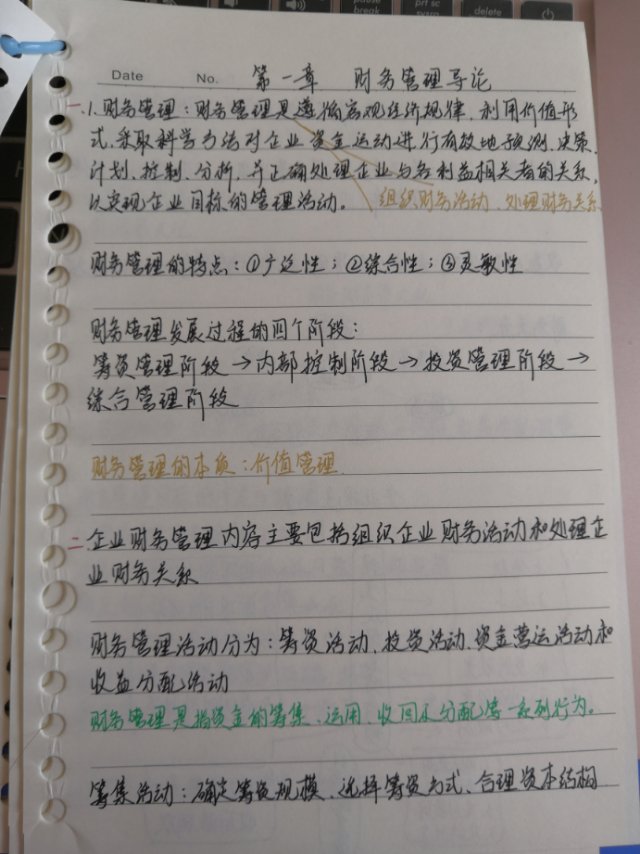 Date No. 第一章 财务管理导论
一.1.财务管理：财务管理是遵循客观经济规律、利用价值形
式、采取科学方法对企业资金运动进行有效地预测、决策、
计划、控制、分析，并正确处理企业与各利益相关者的关系，
以实现企业目标的管理活动。 组织财务活动、处理财务关系
财务管理的特点：①广泛性；②综合性；③灵敏性
财务管理发展过程的四个阶段：
筹资管理阶段→内部控制阶段→投资管理阶段→
综合管理阶段
财务管理的本质：价值管理
二.企业财务管理内容主要包括组织企业财务活动和处理企
业财务关系
财务管理活动分为：筹资活动、投资活动、资金营运活动和
收益分配活动
财务管理是指资金的筹集、运用、收回及分配等一系列行为。
筹集活动：确定筹资规模、选择筹资方式、合理资本结构